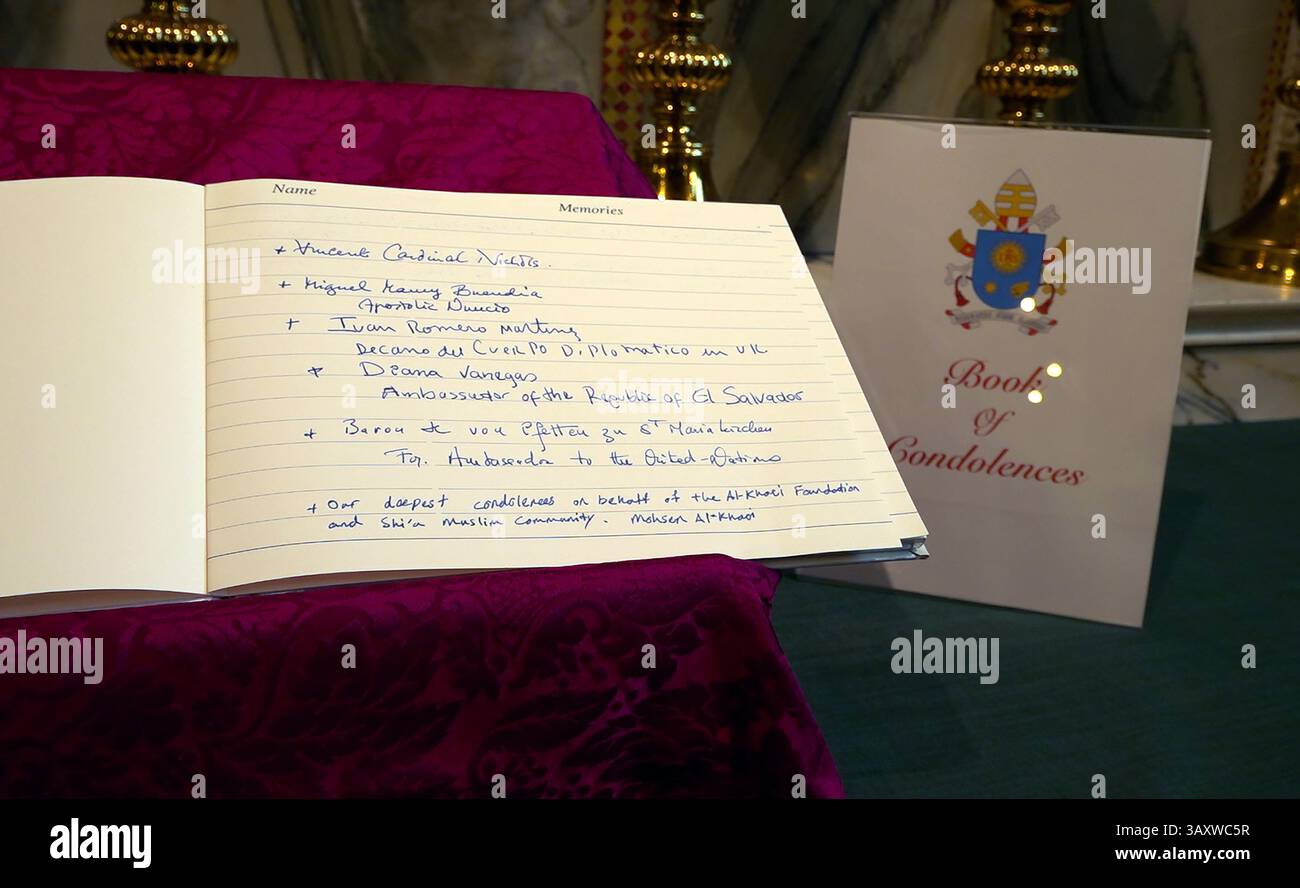 Name Memories
+ Vincent Cardinal Nichols.
+ Miguel Maury Buendia
Apostolic Nuncio
+ Ivan Romero Martinez
Decano del Cuerpo Diplomatico in UK
+ Diana Vanegas
Ambassador of the Republic of El Salvador
+ Baron von Pfetten zu St Mariakirchen
For. Ambassador to the United-Nations
+ Our deepest condolences on behalf of the Al-Khoei Foundation
and Shi'a Muslim Community. Mohsen Al-Khoei
Book
Of
Condolences
alamy
Image ID: 3AXWC5R
www.alamy.com